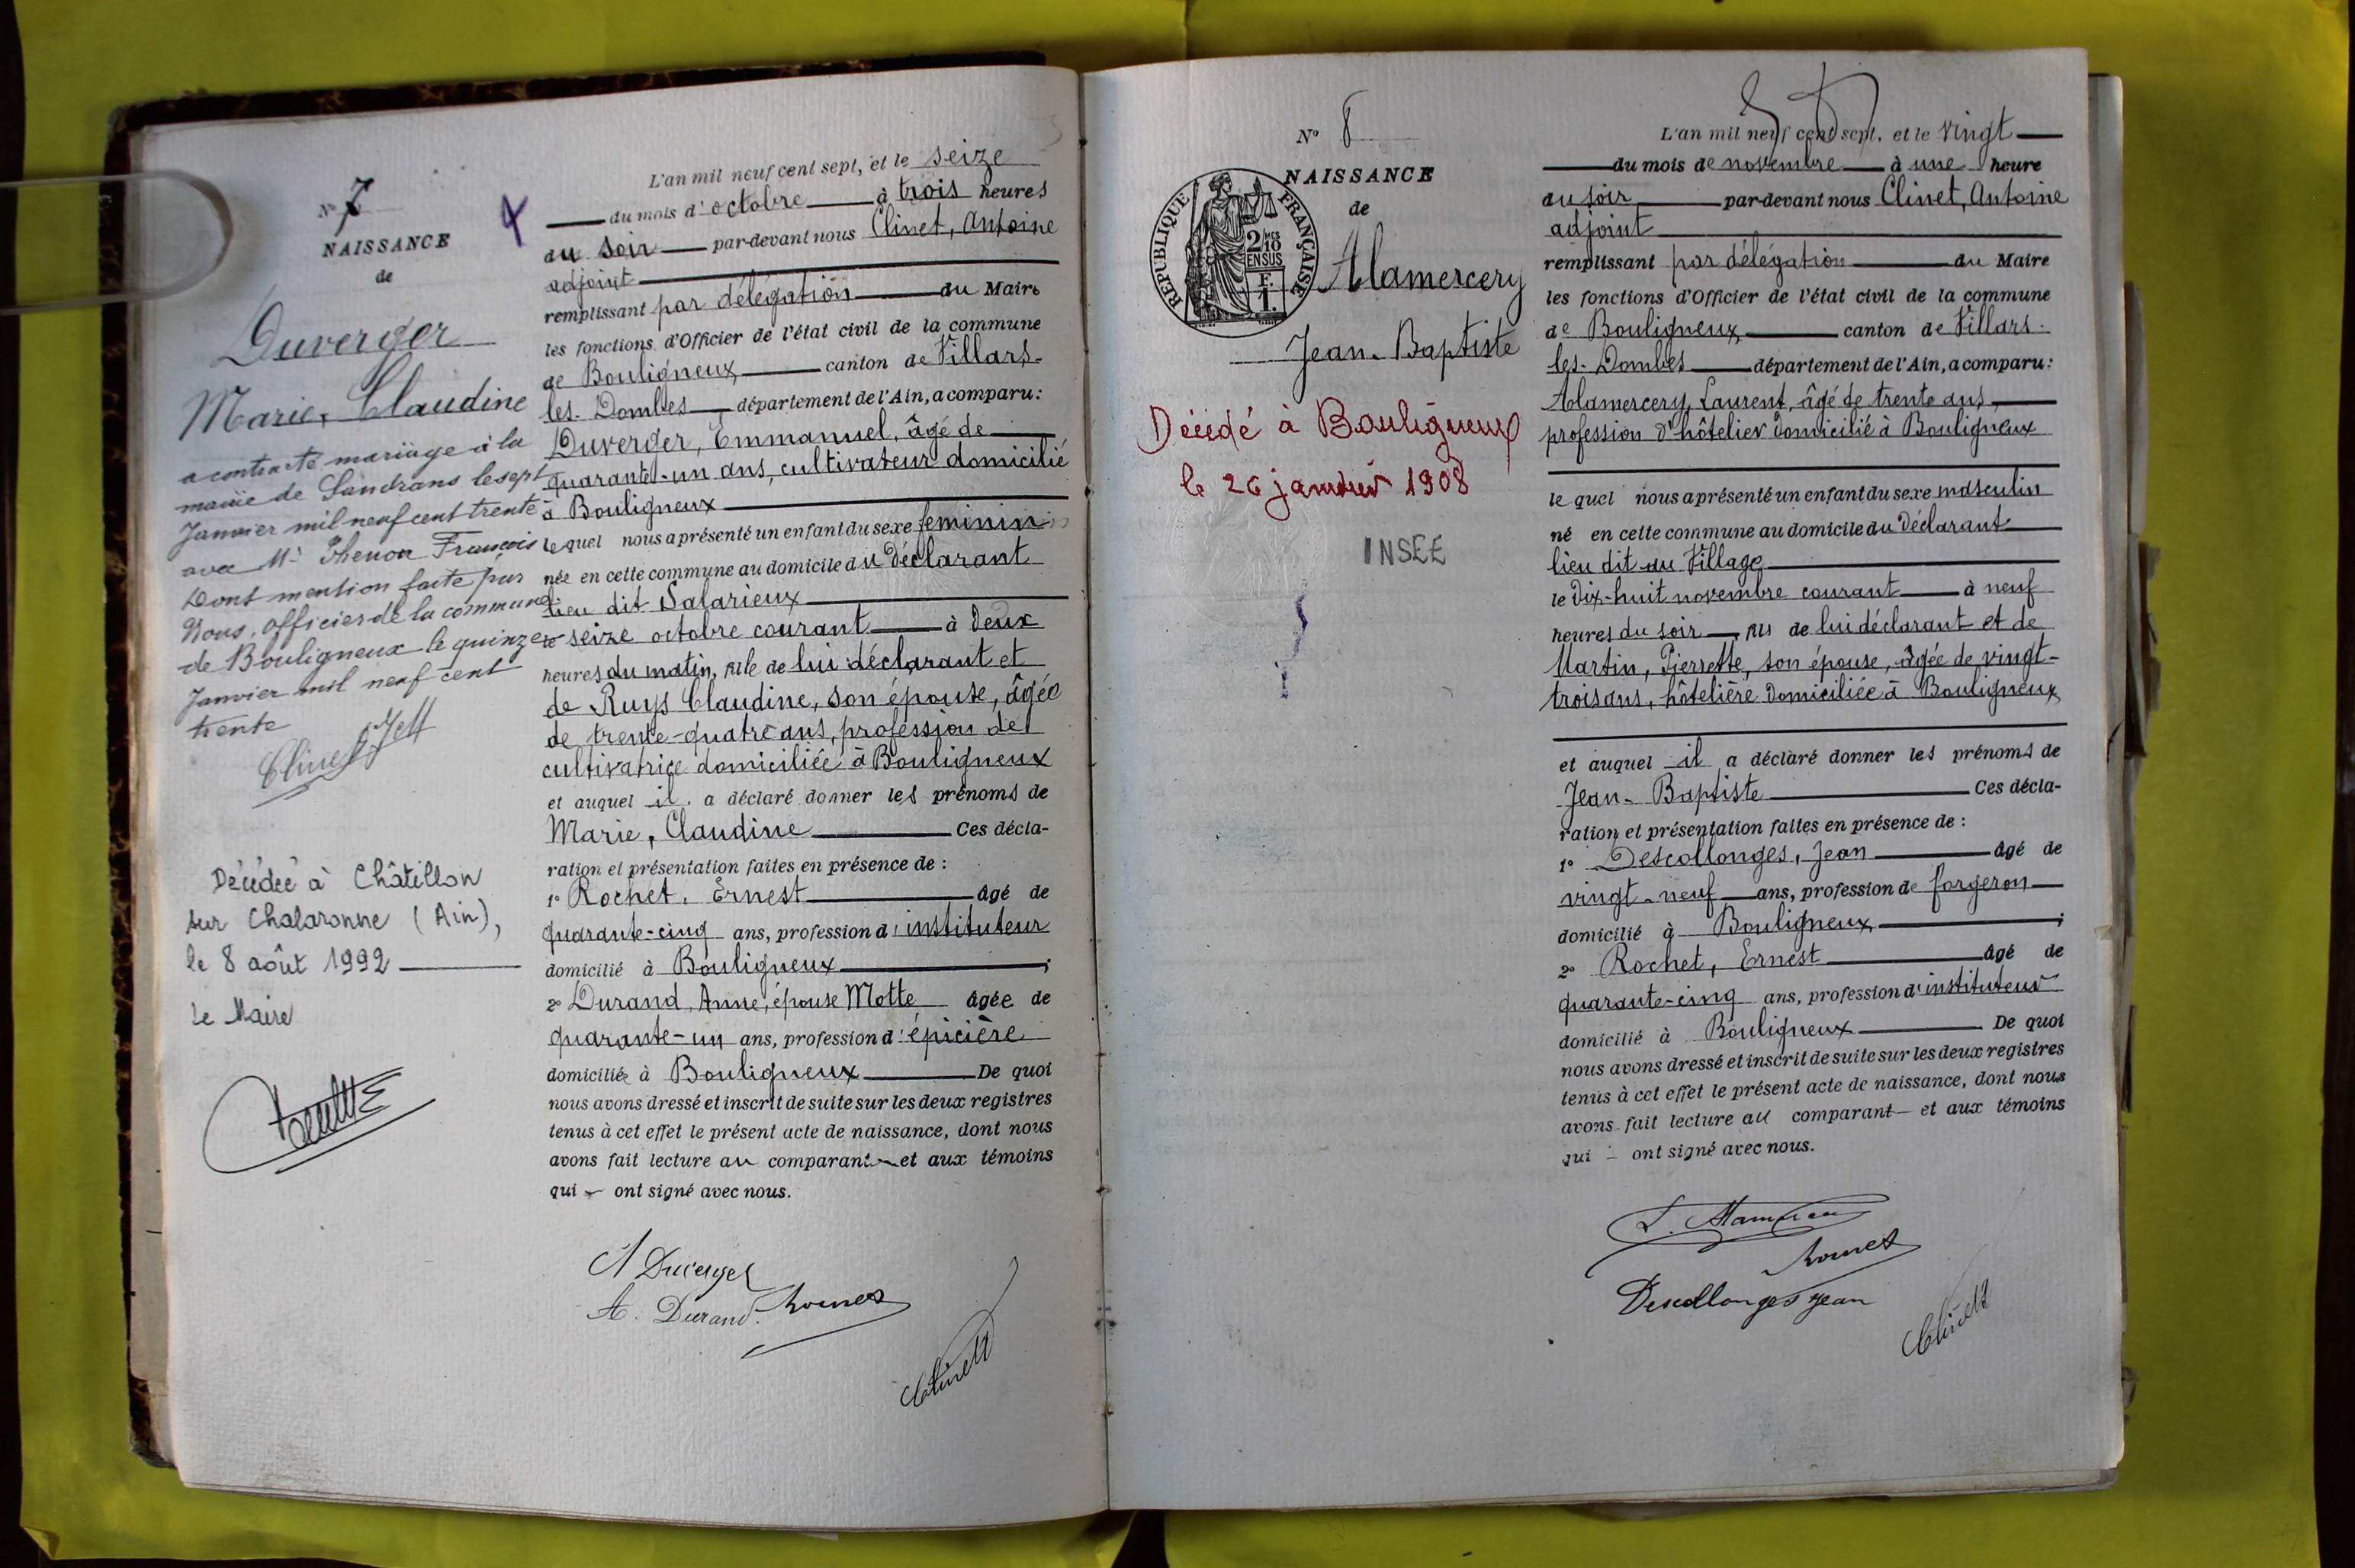 N° 7
NAISSANCE
de
Duverger
Marie, Claudine
a contracté mariage à la
mairie de Sandrans le sept
Janvier mil neuf cent trente
avec Mr Thenon François
Dont mention faite par
Nous, officier de la commune
de Bouligneux le quinze
Janvier mil neuf cent
trente
Clinet
Décédée à Châtillon
sur Chalaronne (Ain),
le 8 août 1992
Le Maire
L'an mil neuf cent sept, et le seize
du mois d'octobre à trois heures
du soir par-devant nous Clinet, Antoine
adjoint
remplissant par délégation du Maire
les fonctions d'Officier de l'état civil de la commune
de Bouligneux canton de Villars-
les-Dombes département de l'Ain, a comparu:
Duverger, Emmanuel, âgé de
quarante-un ans, cultivateur domicilié
à Bouligneux
lequel nous a présenté un enfant du sexe feminin
née en cette commune au domicile du Déclarant
lieu dit Salarieux
le seize octobre courant à deux
heures du matin, fille de lui déclarant et
de Ruys Claudine, son épouse, âgée
de trente-quatre ans, profession de
cultivatrice domiciliée à Bouligneux
et auquel il a déclaré donner les prénoms de
Marie, Claudine Ces décla-
ration et présentation faites en présence de :
1° Rochet, Ernest âgé de
quarante-cinq ans, profession d'instituteur
domicilié à Bouligneux ;
2° Durand, Anne, épouse Motte âgée de
quarante-un ans, profession d'épicière
domiciliée à Bouligneux De quoi
nous avons dressé et inscrit de suite sur les deux registres
tenus à cet effet le présent acte de naissance, dont nous
avons fait lecture au comparant et aux témoins
qui ont signé avec nous.
Duverger
A. Durand
Clinet
N° 8
NAISSANCE
de
RÉPUBLIQUE FRANÇAISE
2/10MES
EN SUS
F.
1
Alamercery
Jean-Baptiste
Décédé à Bouligneux
le 26 janvier 1908
INSEE
L'an mil neuf cent sept, et le vingt
du mois de novembre à une heure
du soir par-devant nous Clinet, Antoine
adjoint
remplissant par délégation du Maire
les fonctions d'Officier de l'état civil de la commune
de Bouligneux canton de Villars-
les-Dombes département de l'Ain, a comparu:
Alamercery, Laurent, âgé de trente ans,
profession d'hôtelier domicilié à Bouligneux
lequel nous a présenté un enfant du sexe masculin
né en cette commune au domicile du Déclarant
lieu dit au Village
le Dix-huit novembre courant à neuf
heures du soir, fils de lui déclarant et de
Martin, Pierrette, son épouse, âgée de vingt-
trois ans, hôtelière domiciliée à Bouligneux
et auquel il a déclaré donner les prénoms de
Jean-Baptiste Ces décla-
ration et présentation faites en présence de :
1° Descollonges, Jean âgé de
vingt-neuf ans, profession de forgeron
domicilié à Bouligneux ;
2° Rochet, Ernest âgé de
quarante-cinq ans, profession d'instituteur
domicilié à Bouligneux De quoi
nous avons dressé et inscrit de suite sur les deux registres
tenus à cet effet le présent acte de naissance, dont nous
avons fait lecture au comparant et aux témoins
qui ont signé avec nous.
Descollonges Jean
Clinet